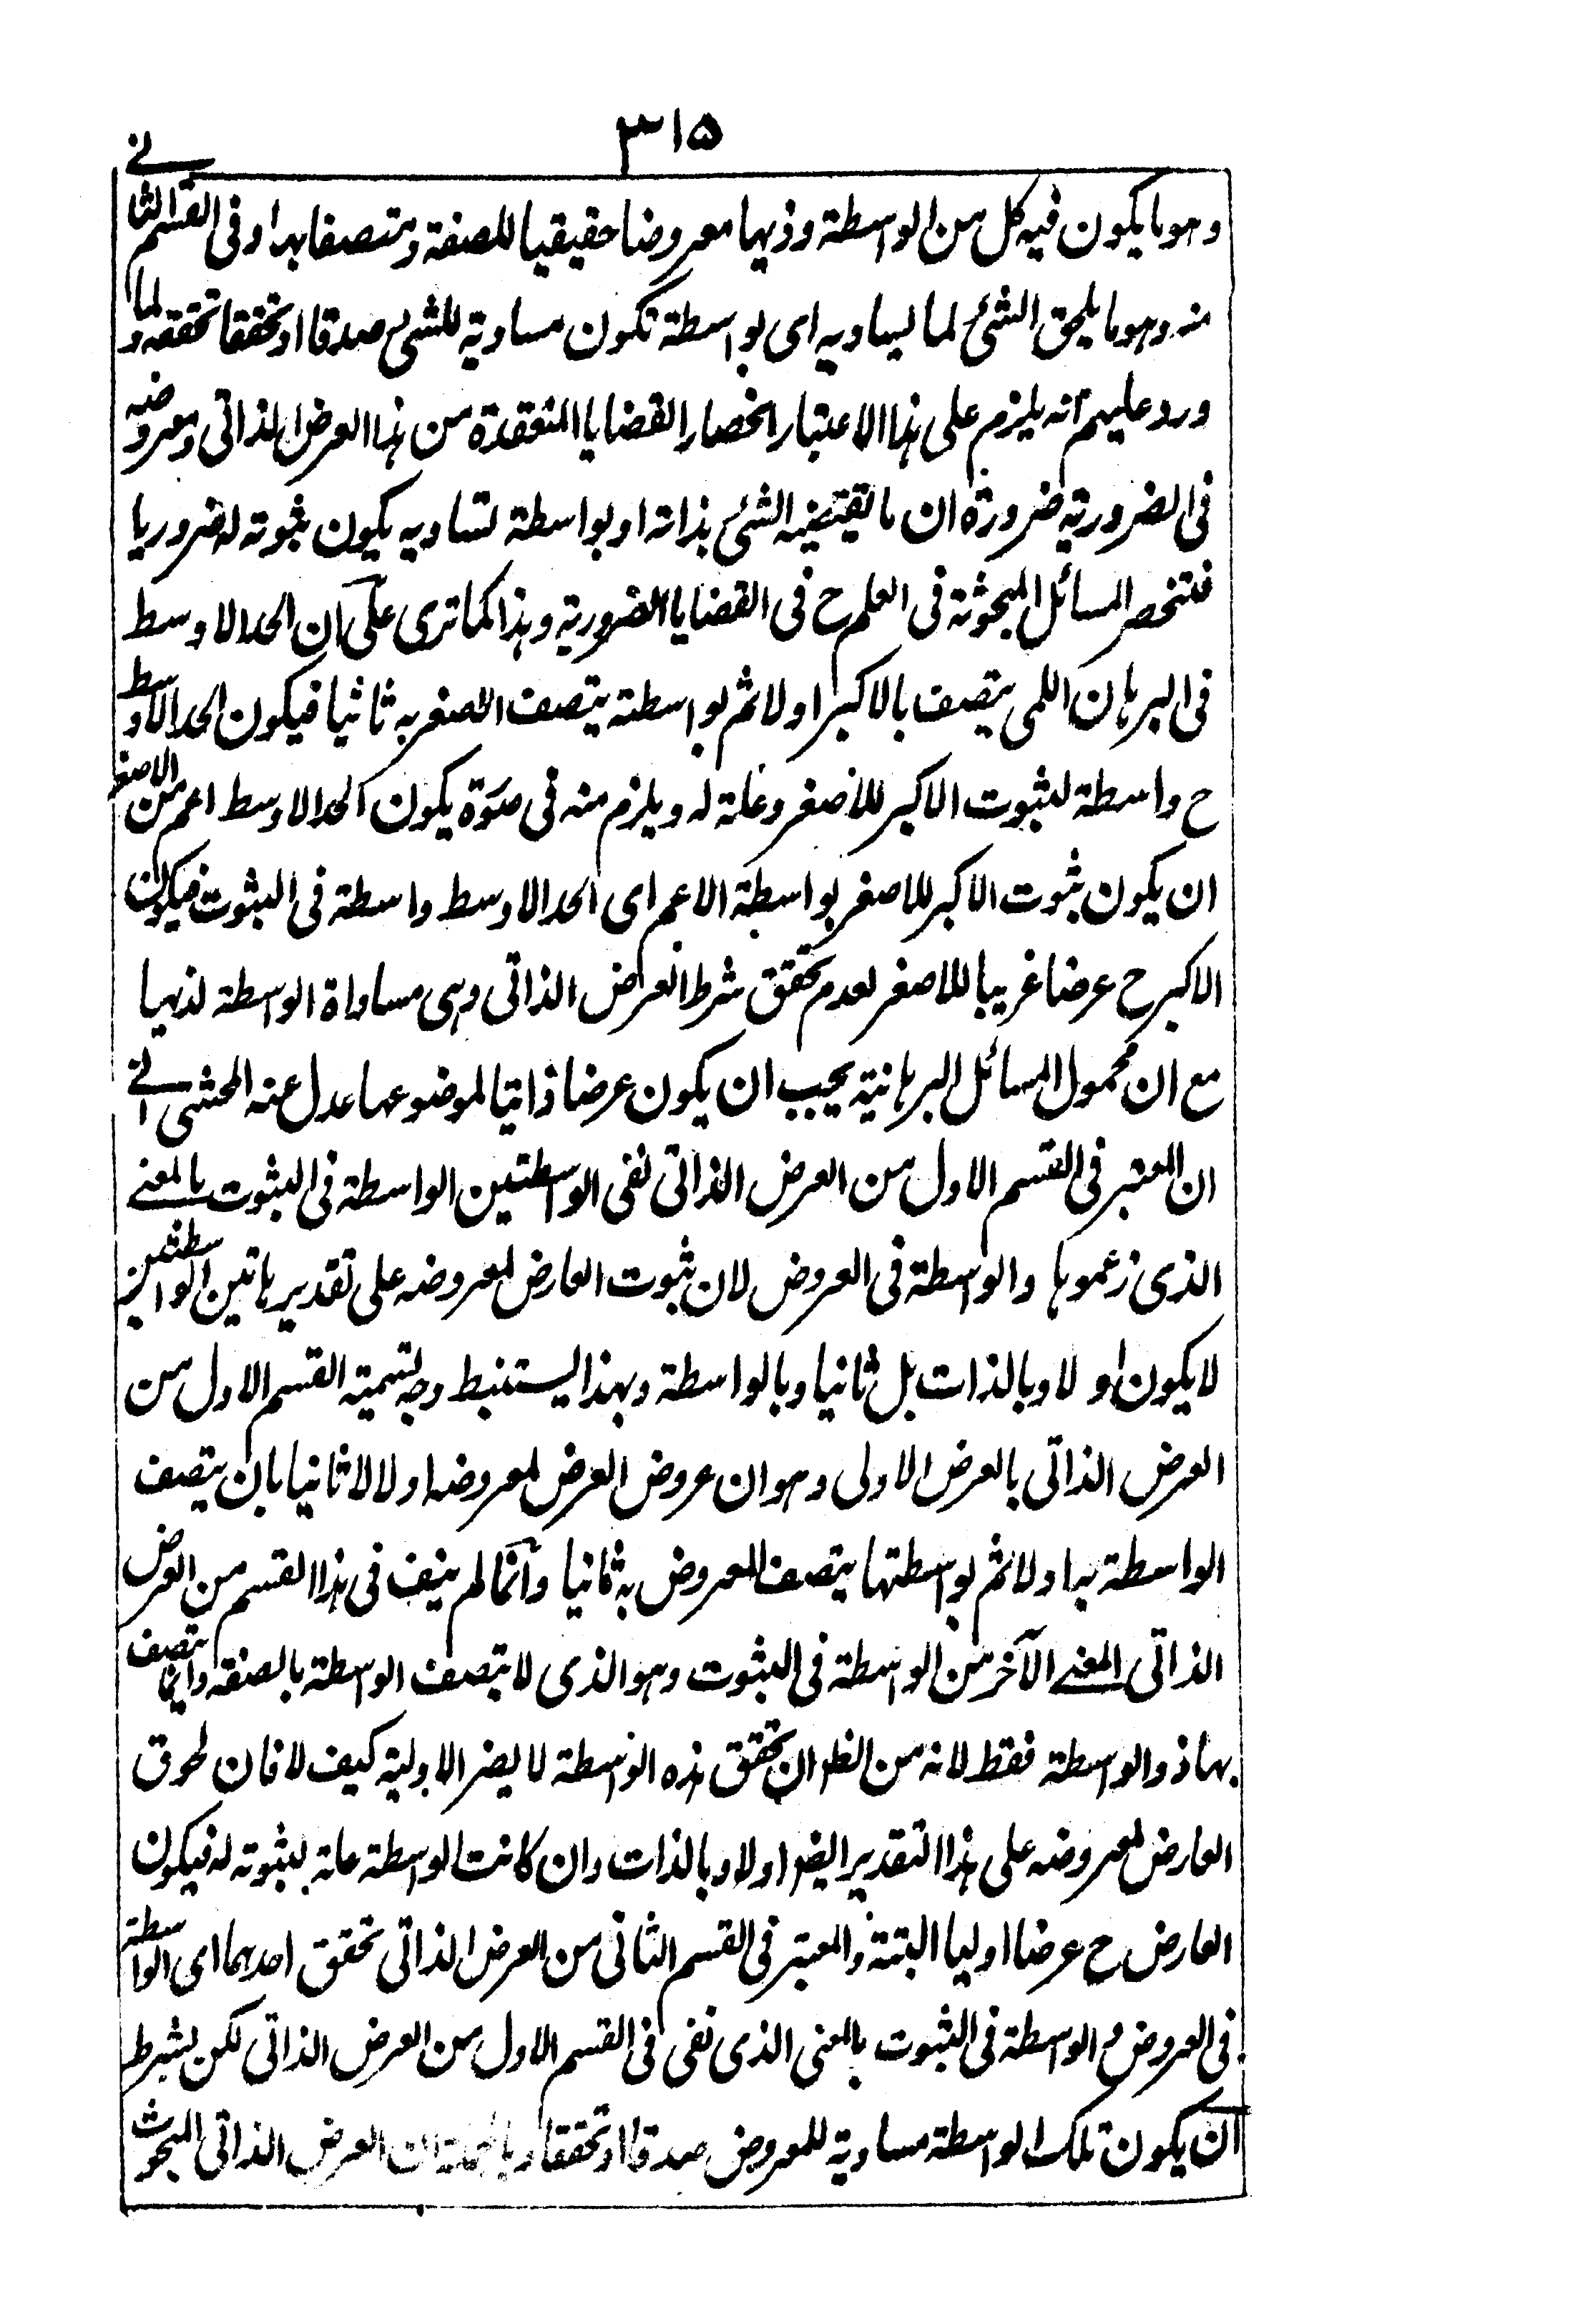 ٣١۵
وهو ما يكون فيه كل من الواسطة وذيها معروضا حقيقيا للصفة ومتصفا بها او فى القسم الثانے
منه وهو ما يلحق الشئ لما يساويه اى بواسطة تكون مساوية للشئ صدقا او تحققا تحققه ولما
ورد عليهم انه يلزم على هذا الاعتبار انحصار القضايا المنعقدة من هذا العرض الذاتى ومعروضه
فى الضرورية ضرورة ان ما تقتضيه الشئ بذاته او بواسطة تساويه يكون ثبوته له ضروريا
فتنحصر المسائل المبحوثة فى العلم ح فى القضايا الضرورية وهذا كما ترى على ان الحد الاوسط
فى البرهان اللمى يتصف بالاكبر اولا ثم بواسطته يتصف الاصغر به ثانيا فيكون الحد الاوسط
ح واسطة لثبوت الاكبر للاصغر وعلة له ويلزم منه فى صورة يكون الحد الاوسط اعم من الاصغر
ان يكون ثبوت الاكبر للاصغر بواسطة الاعم اى الحد الاوسط واسطة فى الثبوت فيكون
الاكبر ح عرضا غريبا للاصغر لعدم تحقق شرط العرض الذاتى وهى مساواة الواسطة لذيها
مع ان محمول المسائل البرهانية يجب ان يكون عرضا ذاتيا لموضوعها عدل عنه المحشى الى
ان المعتبر فى القسم الاول من العرض الذاتى نفى الواسطتين الواسطة فى الثبوت بالمعنے
الذى زعموها والواسطة فى العروض لان ثبوت العارض لمعروضه على تقدير هاتين الواسطتين
لا يكون اولا وبالذات بل ثانيا وبالواسطة وبهذا يستنبط وجه تسمية القسم الاول من
العرض الذاتى بالعرض الاولى وهو ان عروض العرض لمعروضه اولا لا ثانيا بان يتصف
الواسطة به اولا ثم بواسطتها يتصف المعروض به ثانيا وانما لم ينف فى هذا القسم من العرض
الذاتى المعنے الآخر من الواسطة فى الثبوت وهو الذى لا يتصف الواسطة بالصفة وانما يتصف
بها ذو الواسطة فقط لانه من الظ ان تحقق هذه الواسطة لا يضر الاولية كيف لا فان لحوق
العارض لمعروضه على هذا التقدير ايضا اولا وبالذات وان كانت الواسطة علة لثبوته له فيكون
العارض ح عرضا اوليا البتة والمعتبر فى القسم الثانى من العرض الذاتى تحقق احدهما اى الواسطة
فى العروض والواسطة فى الثبوت بالمعنى الذى نفى فى القسم الاول من العرض الذاتى لكن بشرط
ان يكون تلك الواسطة مساوية للمعروض صدقا او تحققا وبالجملة ان العرض الذاتى المبحوث